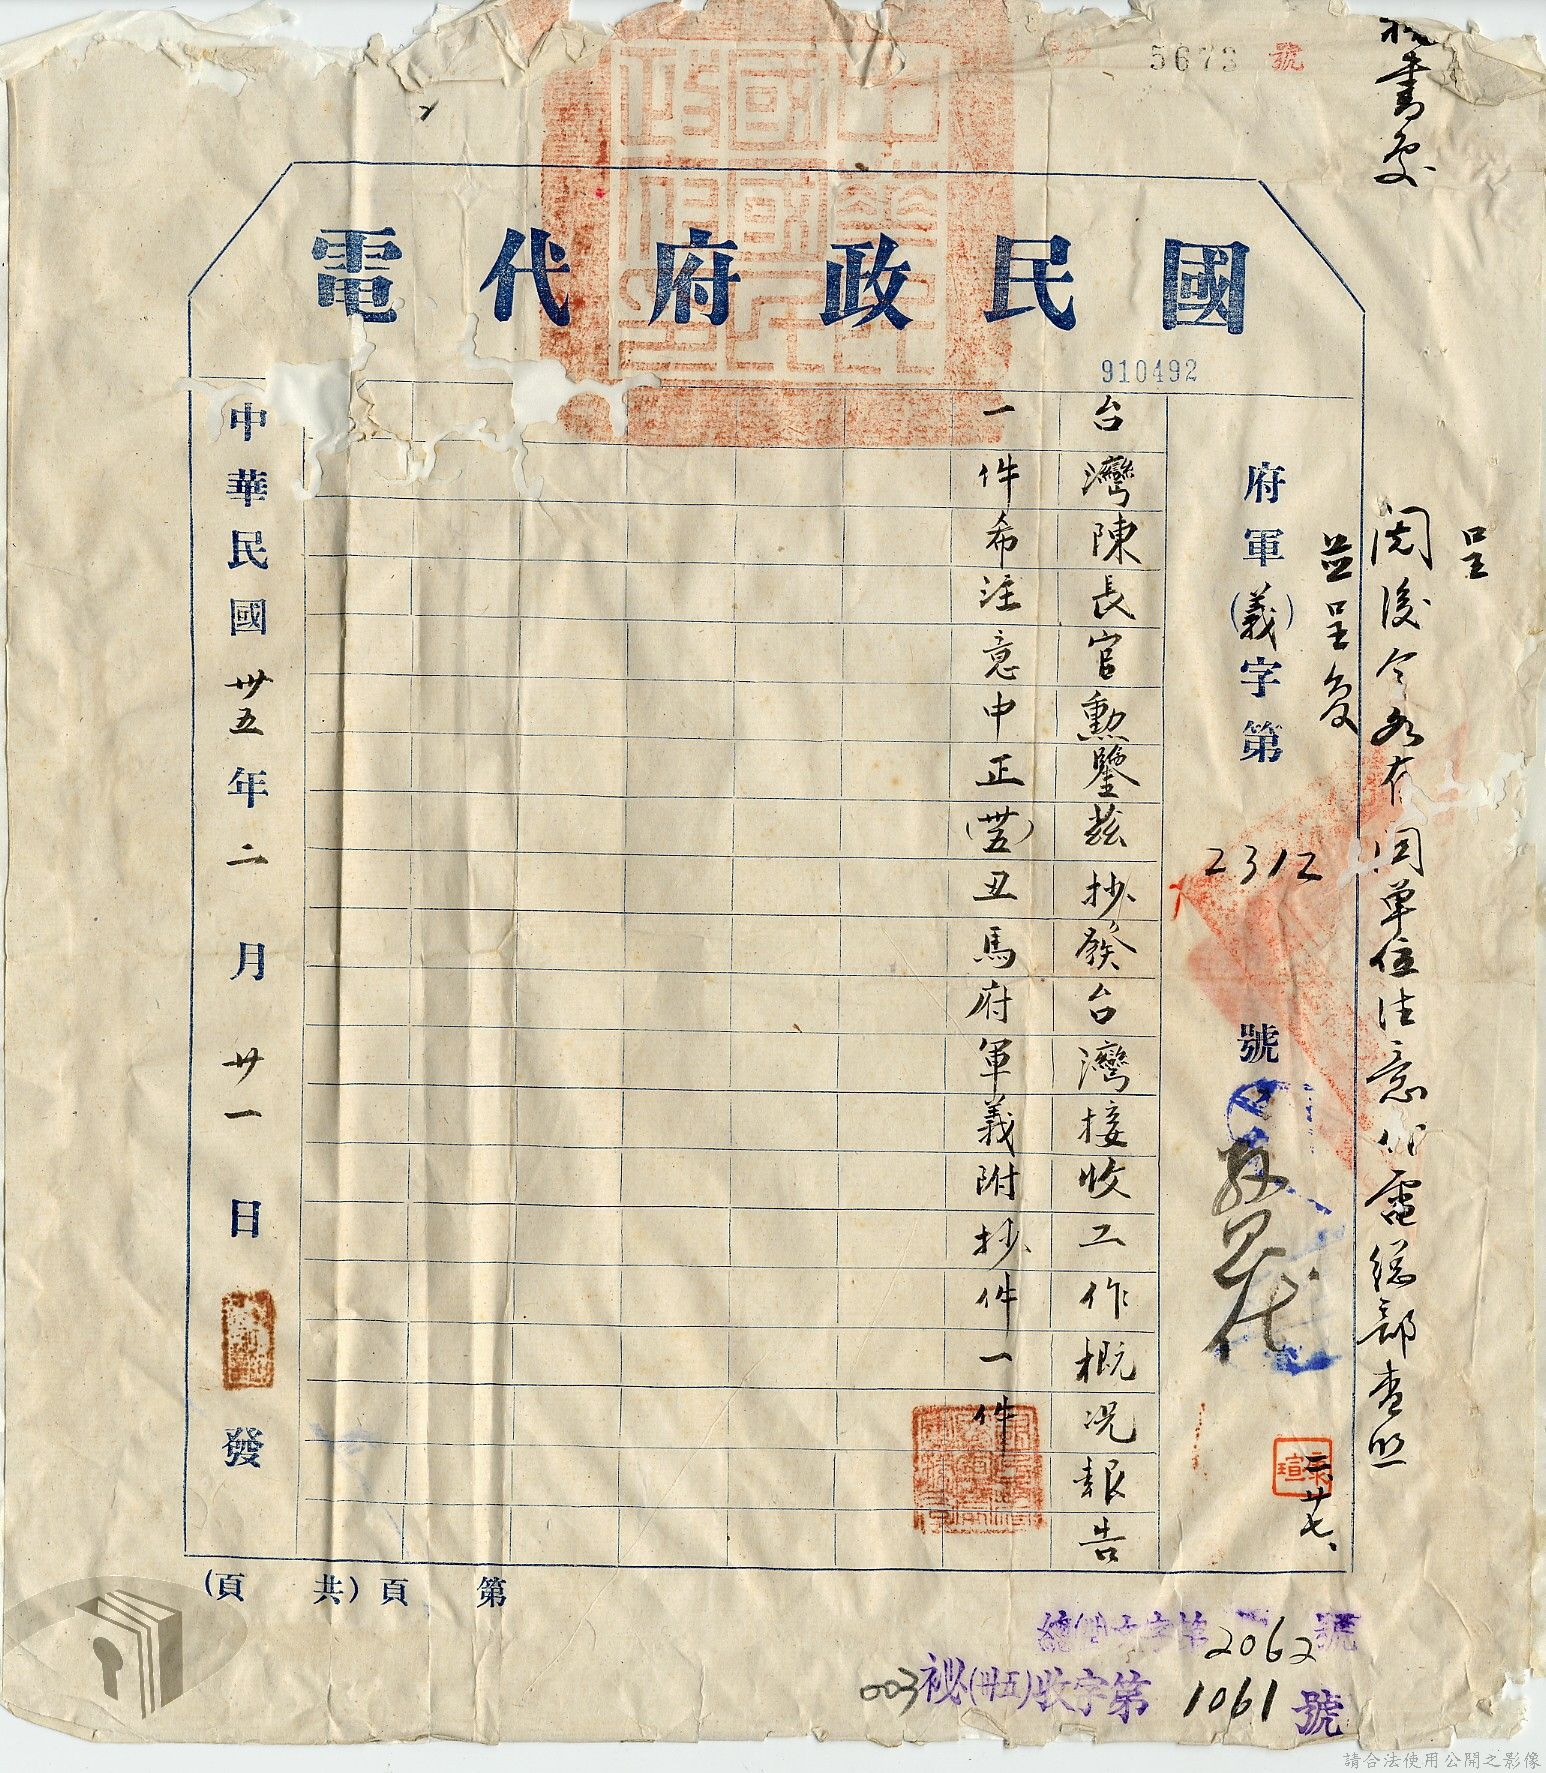 秘書處
5673 號
國民政府代電
910492
呈
閱後令各有關單位注意並電總部查照
並呈復
府軍(義)字第 2312 號
二、廿七、
台灣陳長官勳鑒茲抄發台灣接收工作概況報告
一件希注意中正(卅五)丑馬府軍義附抄件一件
中華民國卅五年二月廿一日發
第 頁(共 頁)
2062 號
003 祕(卅五)收字第 1061 號
請合法使用公開之影像